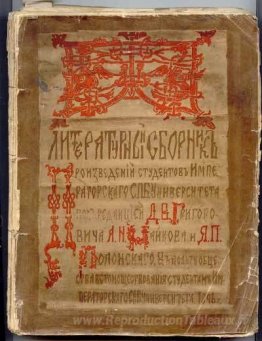 ЛИТЕРАТУРНЫЙ СБОРНИКЪ
ПРОИЗВЕДЕНІЙ СТУДЕНТОВЪ ИМПЕ
РАТОРСКАГО С.П.Б. УНИВЕРСИТЕТА
ПОДЪ РЕДАКЦІЕЙ Д.В. ГРИГОРО
ВИЧА А.Н. МАЙКОВА И Я.П.
ПОЛОНСКАГО. ВЪ ПОЛЬЗУ ОБЩЕ
СТВА ВСПОМОЩЕСТВОВАНІЯ СТУДЕНТАМЪ ИМ
ПЕРАТОРСКАГО С.П.Б. УНИВЕРСИТЕТА
www.ReproductionTableaux